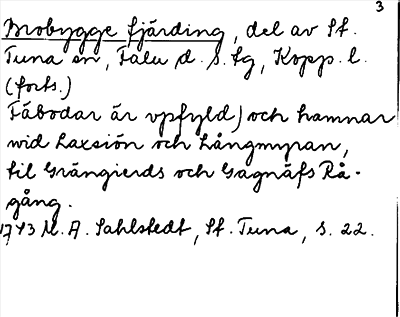 3
Brobygge fjärding, del av St.
Tuna sn, Falu d. s. tg, Kopp. l.
(forts.)
Fäbodar är vpfyld) och hamnar
wid Laxsiön och Långmyran,
til Grängierds och Gagnäfs Rå-
gång.
1743 M. A. Sahlstedt, St. Tuna, s. 22.